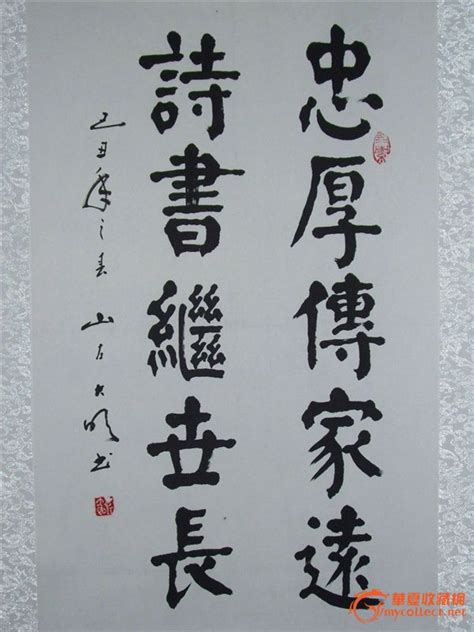 忠厚傳家遠
詩書繼世長
己丑年之春 山左大明書
華夏收藏網
mycollect.net